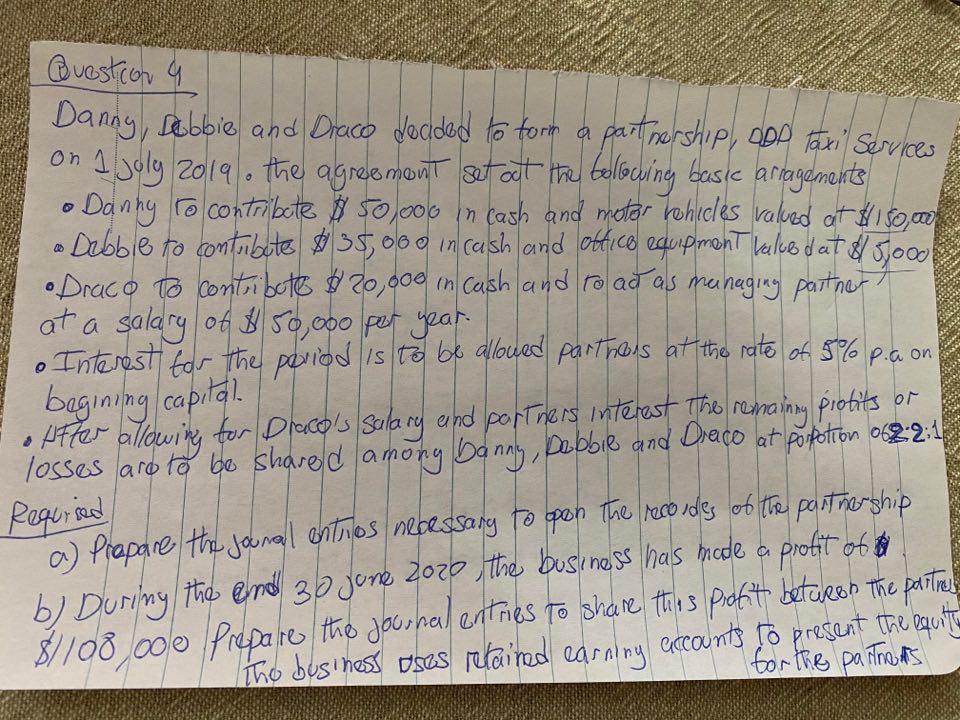 Question 4
Danny, Debbie and Draco decided to form a partnership, DDD Taxi Services
on 1 July 2019. the agreement set out the following basic arragements
• Danny to contribute $ 50,000 in cash and motor vehicles valued at $150,000
• Debbie to contribute $ 35,000 in cash and office equipment valued at $15,000
• Draco to contribute $ 20,000 in cash and to act as managing partner,
at a salary of $ 50,000 per year.
• Interest for the period is to be allowed partners at the rate of 5% p.a on
begining capital.
• After allowing for Draco's salary and partners interest the remainny profits or
losses are to be shared among Danny, Debbie and Draco at porpotion of 2:2:1
Required
a) Prepare the journal entries necessary to open the recordes of the partnership
b) During the end 30 june 2020, the business has made a profit of
$1108,000 Prepare the journal entries to share this profit between the partners
the business uses retained earning accounts to present the equity
for the partners